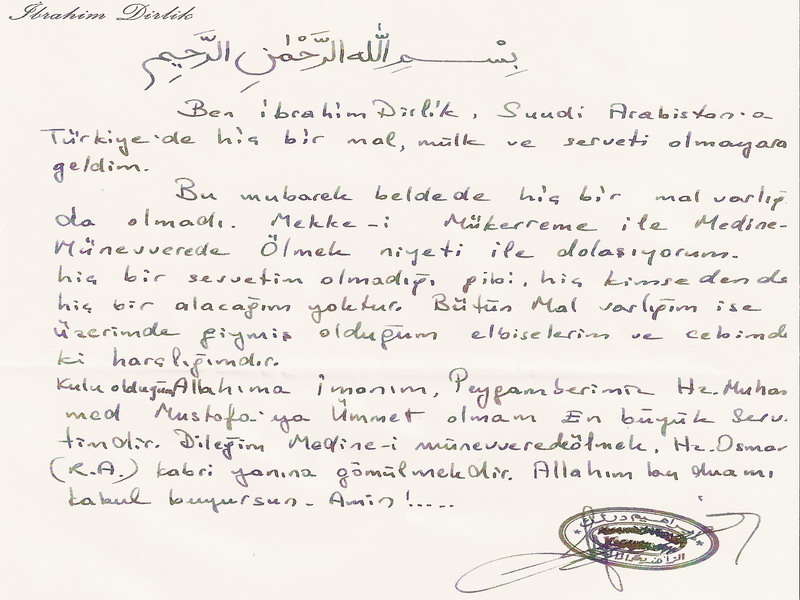 İbrahim Dirlik
بِسْمِ اللَّهِ الرَّحْمٰنِ الرَّحِيمِ
Ben ibrahim Dirlik, Suudi Arabiston'a
Türkiye'de hiç bir mal, mülk ve serveti olmayara
geldim.
Bu mubarek beldede hiç bir mal varlığı
da olmadı. Mekke-i Mükerreme ile Medine-
Münevverede Ölmek niyeti ile dolaşıyorum.
hiç bir servetim olmadığı gibi, hiç kimseden de
hiç bir alacağım yoktur. Bütün Mal varlığım ise
üzerimde giymiş olduğum elbiselerim ve cebimd
ki harçlığımdır.
Kulu olduğum Allahıma İmanım, Peygamberimiz Hz. Muha
med Mustafa'ya Ümmet olmam En büyük Serv
timdir. Dileğim Medine-i münevverede ölmek, Hz. Osmar
(R.A.) kabri yanına gömülmekdir. Allahım bu duamı
kabul buyursun. Amin!.....